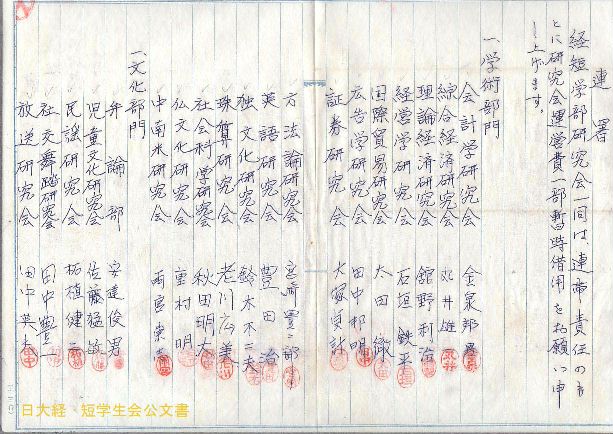 連署
経短学部研究会一同は、連帯責任のも
とに研究会運営費一部暫時借用をお願い申
し上げます。
一、学術部門
会計学研究会
綜合経済研究会
理論経済研究会 舘野利治
経営学研究会 石垣鉄平
国際貿易研究会 太田
広告学研究会 田中邦明
証券研究会 大塚
方法論研究会
英語研究会 豊田治
独文化研究会 鈴木不二夫
珠算研究会 老川広美
社会科学研究会 秋田明大
仏文化研究会 重村明
中南米研究会 雨宮
一、文化部門
弁論部 安達俊男
児童文化研究会 佐藤猛
民謡研究会 柘植健
社交舞踏研究会 田中
放送研究会 田中英夫
日大経・短学生会公文書